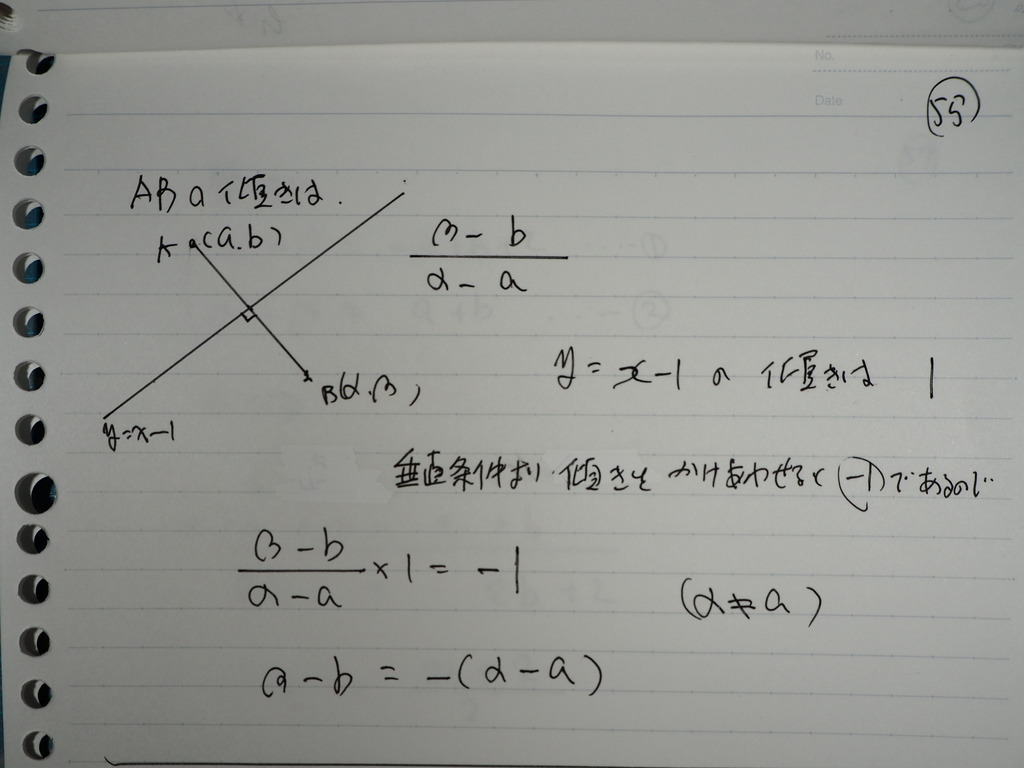 No.
Date
55
ABの傾きは.
A (a.b)
β - b / α - a
y = x-1 の 傾きは 1
B(α.β)
y=x-1
垂直条件より. 傾きを かけあわせると (-1)であるので
β-b / α-a × 1 = -1
(α≠a)
β-b = -(α-a)